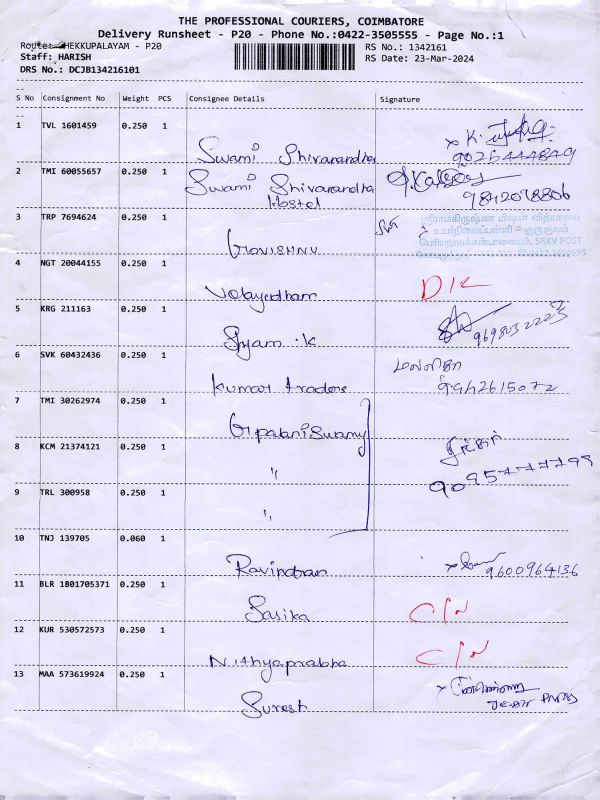 THE PROFESSIONAL COURIERS, COIMBATORE
Delivery Runsheet - P20 - Phone No.:0422-3505555 - Page No.:1
Route: HEKKUPALAYAM - P20 RS No.: 1342161
Staff: HARISH RS Date: 23-Mar-2024
DRS No.: DCJB134216101
S No Consignment No Weight PCS Consignee Details Signature
1 TVL 1601459 0.250 1 Swami Shivanandha
2 TMI 60055657 0.250 1 Swami Shivanandha Hostel 9842078806
3 TRP 7694624 0.250 1
ஸ்ரீராமகிருஷ்ண மிஷன் வித்யாலய
உயர்நிலைப்பள்ளி - குருகுலம்
பெரியநாயக்கன்பாளையம், SRKV POST
4 NGT 20044155 0.250 1 D/L
5 KRG 211163 0.250 1 Shyam .K 9698032223
6 SVK 60432436 0.250 1 Kumar traders மல்லிகா 9942615072
7 TMI 30262974 0.250 1
8 KCM 21374121 0.250 1 "
9 TRL 300958 0.250 1 "
10 TNJ 139705 0.060 1 Ravindran 9600964136
11 BLR 1801705371 0.250 1 Sasika C/N
12 KUR 530572573 0.250 1 Nithyaprabha C/N
13 MAA 573619924 0.250 1 Suresh